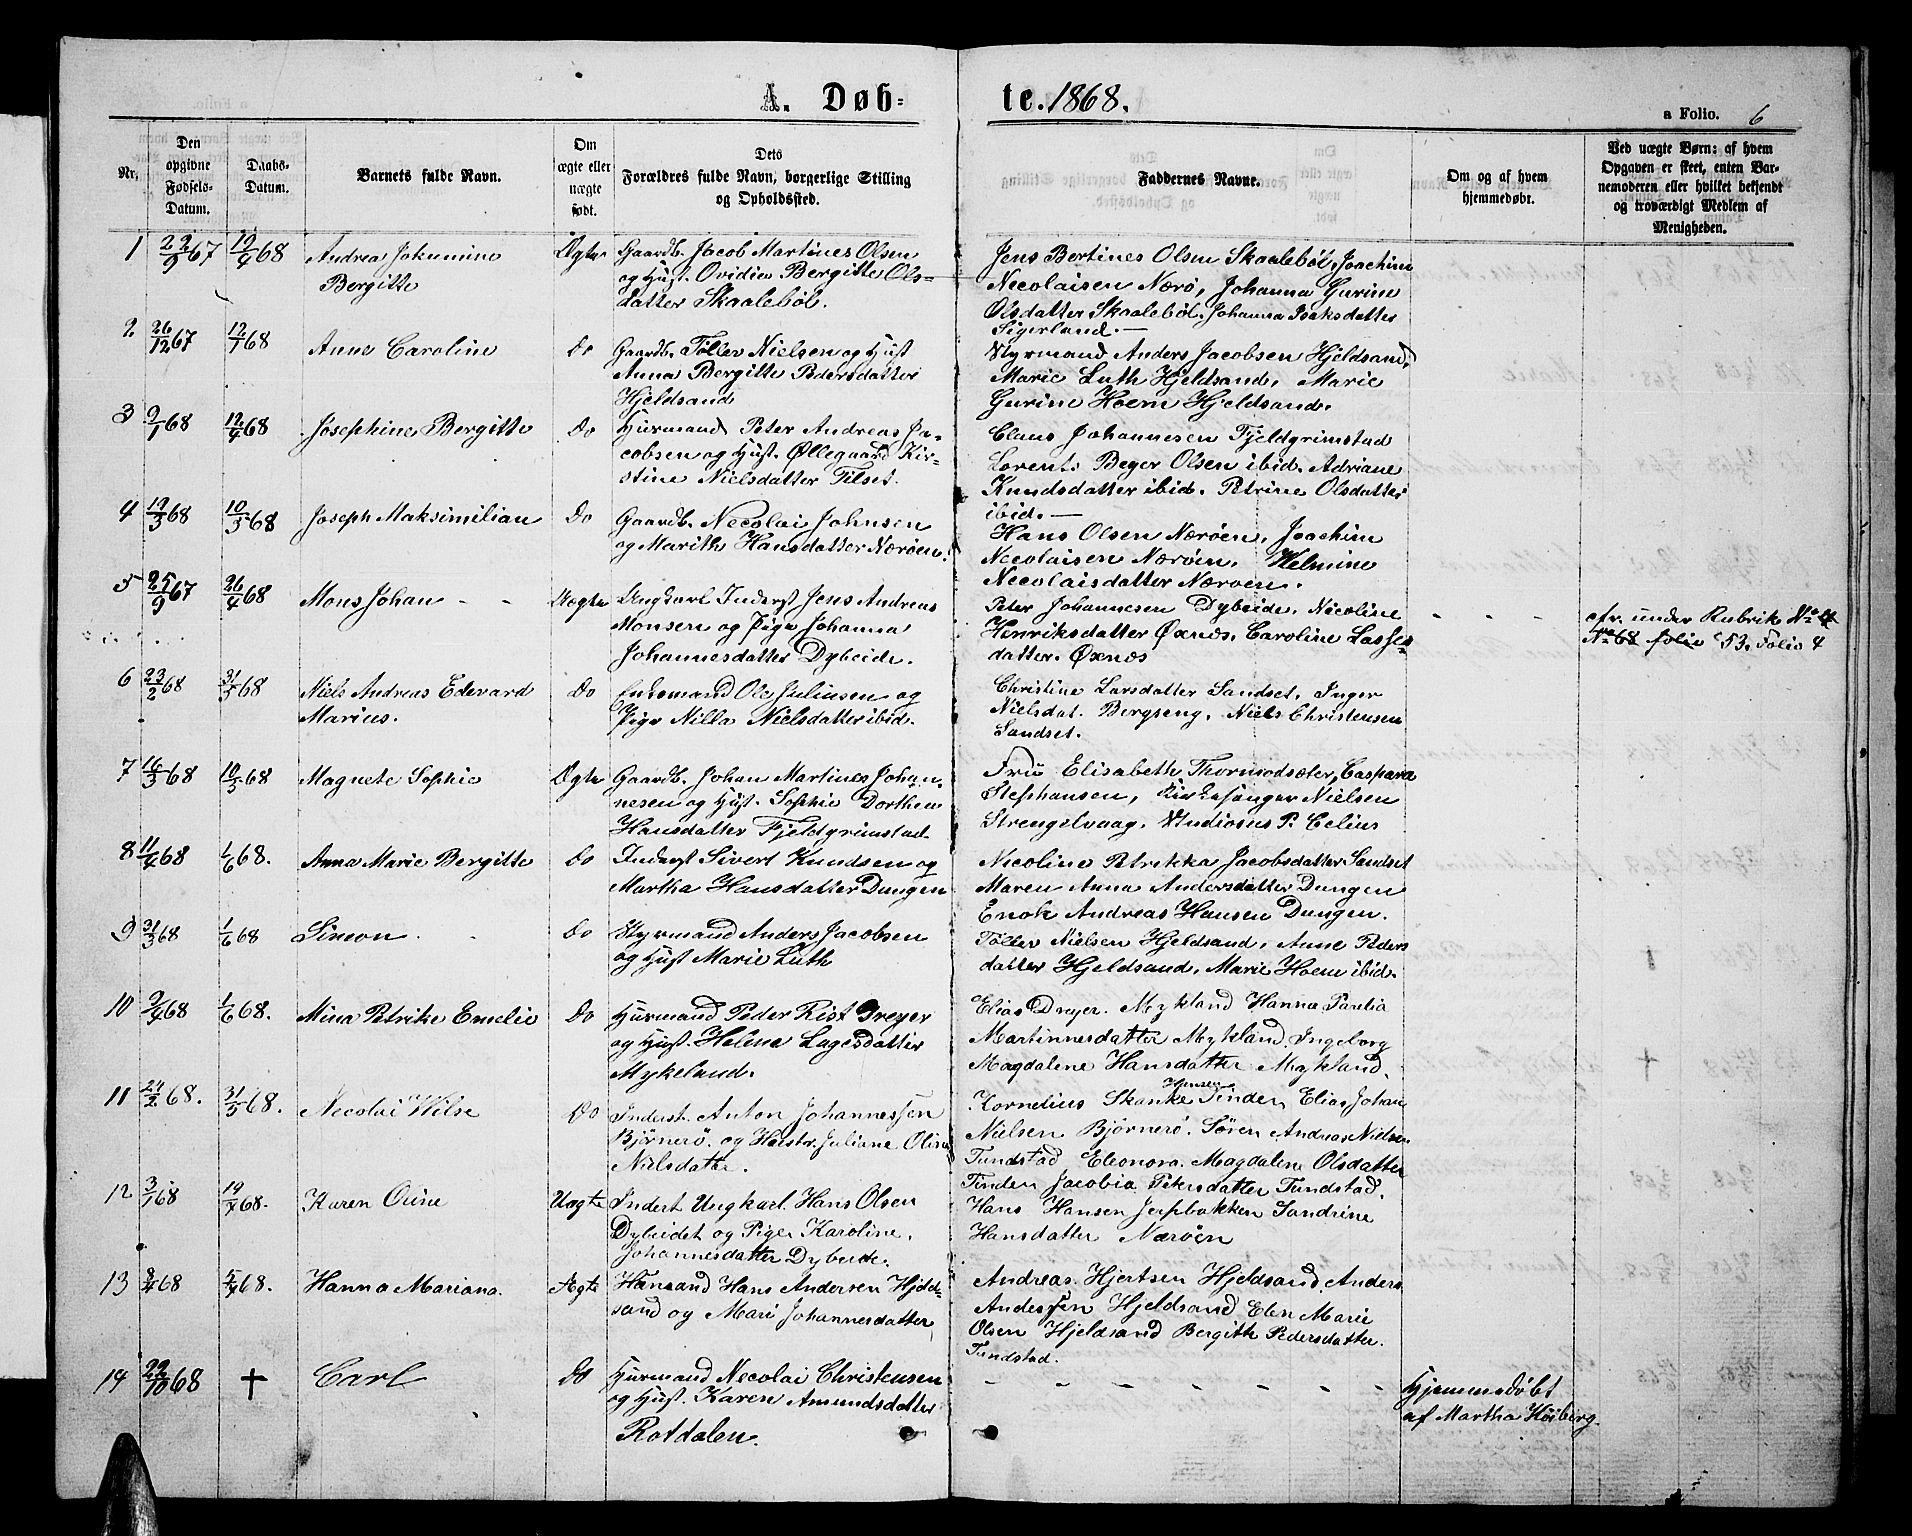 A. Døbte. 1868.
a Folio. 6
Nr.
Den opgivne Fødsels-Datum.
Daabs-Datum.
Barnets fulde Navn.
Om ægte eller uægte født.
Dets Forældres fulde Navn, borgerlige Stilling og Opholdssted.
Faddernes Navne.
Om og af hvem hjemmedøbt.
Ved uægte Børn: af hvem Opgaven er skeet, enten Barnemoderen eller hvilket bekjendt og troværdigt Medlem af Menigheden.
1 22/9 67 12/4 68 Andrea Jokumine
Bergitte
Ægte
Gaardb. Jacob Martines Olsen
og Hust. Ovidia Bergitte Ols-
datter Skaalebøl.
Jens Bertines Olsen Skaalebøl, Joachim
Necolaisen Nærø, Johanna Gurine
Olsdatter Skaalebøl, Johanna Isaksdatter
Sigerland.
2 26/12 67 12/1 68 Anne Caroline Do
Gaardb. Töller Nielsen og Hust
Anna Bergitte Pedersdatter
Hjeldsand
Styrmand Anders Jacobsen Hjeldsand,
Marie Luth Hjeldsand, Marie
Gurine Hoem Hjeldsand.
3 9/1 68 12/4 68 Josephine Bergitte Do
Huusmand Peter Andreas Ja-
cobsen og Hust. Øllegaard Kir-
stine Nielsdatter Filset.
Claus Johannesen Fjeldgrimstad
Lorents Beyer Olsen ibid. Adriane
Knudsdatter ibid. Petrine Olsdatter
ibid.
4 19/3 68 10/5 68 Joseph Maksimilian Do
Gaardb. Necolai Johnsen
og Marith Hansdatter Nærøen.
Hans Olsen Nærøen, Joachim
Necolaisen Nærøen, Helmine
Necolaisdatter Nærøen.
5 25/9 67 26/4 68 Mons Johan - - Uægte
Ungkarl Inderst Jens Andreas
Monsen og Pige Johanna
Johannesdatter Dybeide.
Peter Johannesen Dybeide, Nicoline
Henriksdatter Øxnes, Caroline Lasses-
datter. Øxnes
- - cfr. under Rubrik No 4
No 68 folio 53. Folio 4
6 23/2 68 31/5 68 Niels Andreas Edevard
Marius.
Do
Enkemand Ole Juliusen og
Pige Nilla Nielsdatter ibid.
Christine Larsdatter Sandset, Inger
Nielsdat. Bergseng, Niels Christensen
Sandset.
7 16/3 68 10/5 68 Magnete Sophie Ægte
Gaardb. Johan Martines Johan-
nesen og Hust. Sophie Dorthea
Hansdatter Fjeldgrimstad
Fru Elisabeth Thormodsæter, Caspara
Stephansen, Kirkesanger Nielsen
Strengelvaag, Studiosus P. Celius
8 11/4 68 1/6 68. Anna Marie Bergitte Do
Inderst Sivert Knudsen og
Martha Hansdatter Dungen
Nicoline Petrikka Jacobsdatter Sandset
Maren Anna Andersdatter Dungen
Enok Andreas Hansen Dungen.
9 31/3 68 1/6 68 Simon. Do
Styrmand Anders Jacobsen
og Hust Marie Luth
Töller Nielsen Hjeldsand, Anne Peders
datter Hjeldsand, Marie Hoem ibid.
10 9/4 68 1/6 68. Mina Petrike Emelie Do
Huusmand Peder Rist Dreyer
og Hust. Helena Lagesdatter
Mykeland.
Elias Dreyer. Mykland Hanna Paulia
Martinnesdatter Mykland, Ingeborg
Magdalene Hansdatter Mykland.
11 24/2 68. 31/5 68. Necolai Wilse Do
Inderst. Anton Johannessen
Bjørnerø. og Hustr. Juliane Oline
Nielsdatter.
Kornelius Skanke Hansen Tinden, Elias Johan
Nielsen Bjørnerø. Søren Andreas Nielsen
Tundstad Eleonora Magdalene Olsdatter
Tinden Jacobia Petersdatter Tundstad.
12 3/1 68 19/7 68. Karen Orine Uægte
Inderst Ungkarl. Hans Olsen
Dybeidet og Pige Karoline
Johannesdatter Dybeide.
Hans Hansen Jerpbakken Sandrine
Hansdatter Nærøen
13 8/4 68 5/7 68. Hanna Mariana. Ægte
Hans Andersen Hjeld-
sand og Mari Johannesdatter
Andreas Hjertsen Hjeldsand, Anders
Andersen Hjeldsand Elen Marie
Olsen Hjeldsand Bergith Pedersdatter.
Tundstad.
14 22/10 68 † Carl Do
Huusmand Necolai Christensen
og Hust. Karen Amundsdatter
Rotdalen.
- - - - - - - - -
Hjemmedøbt
af Martha Høiberg.